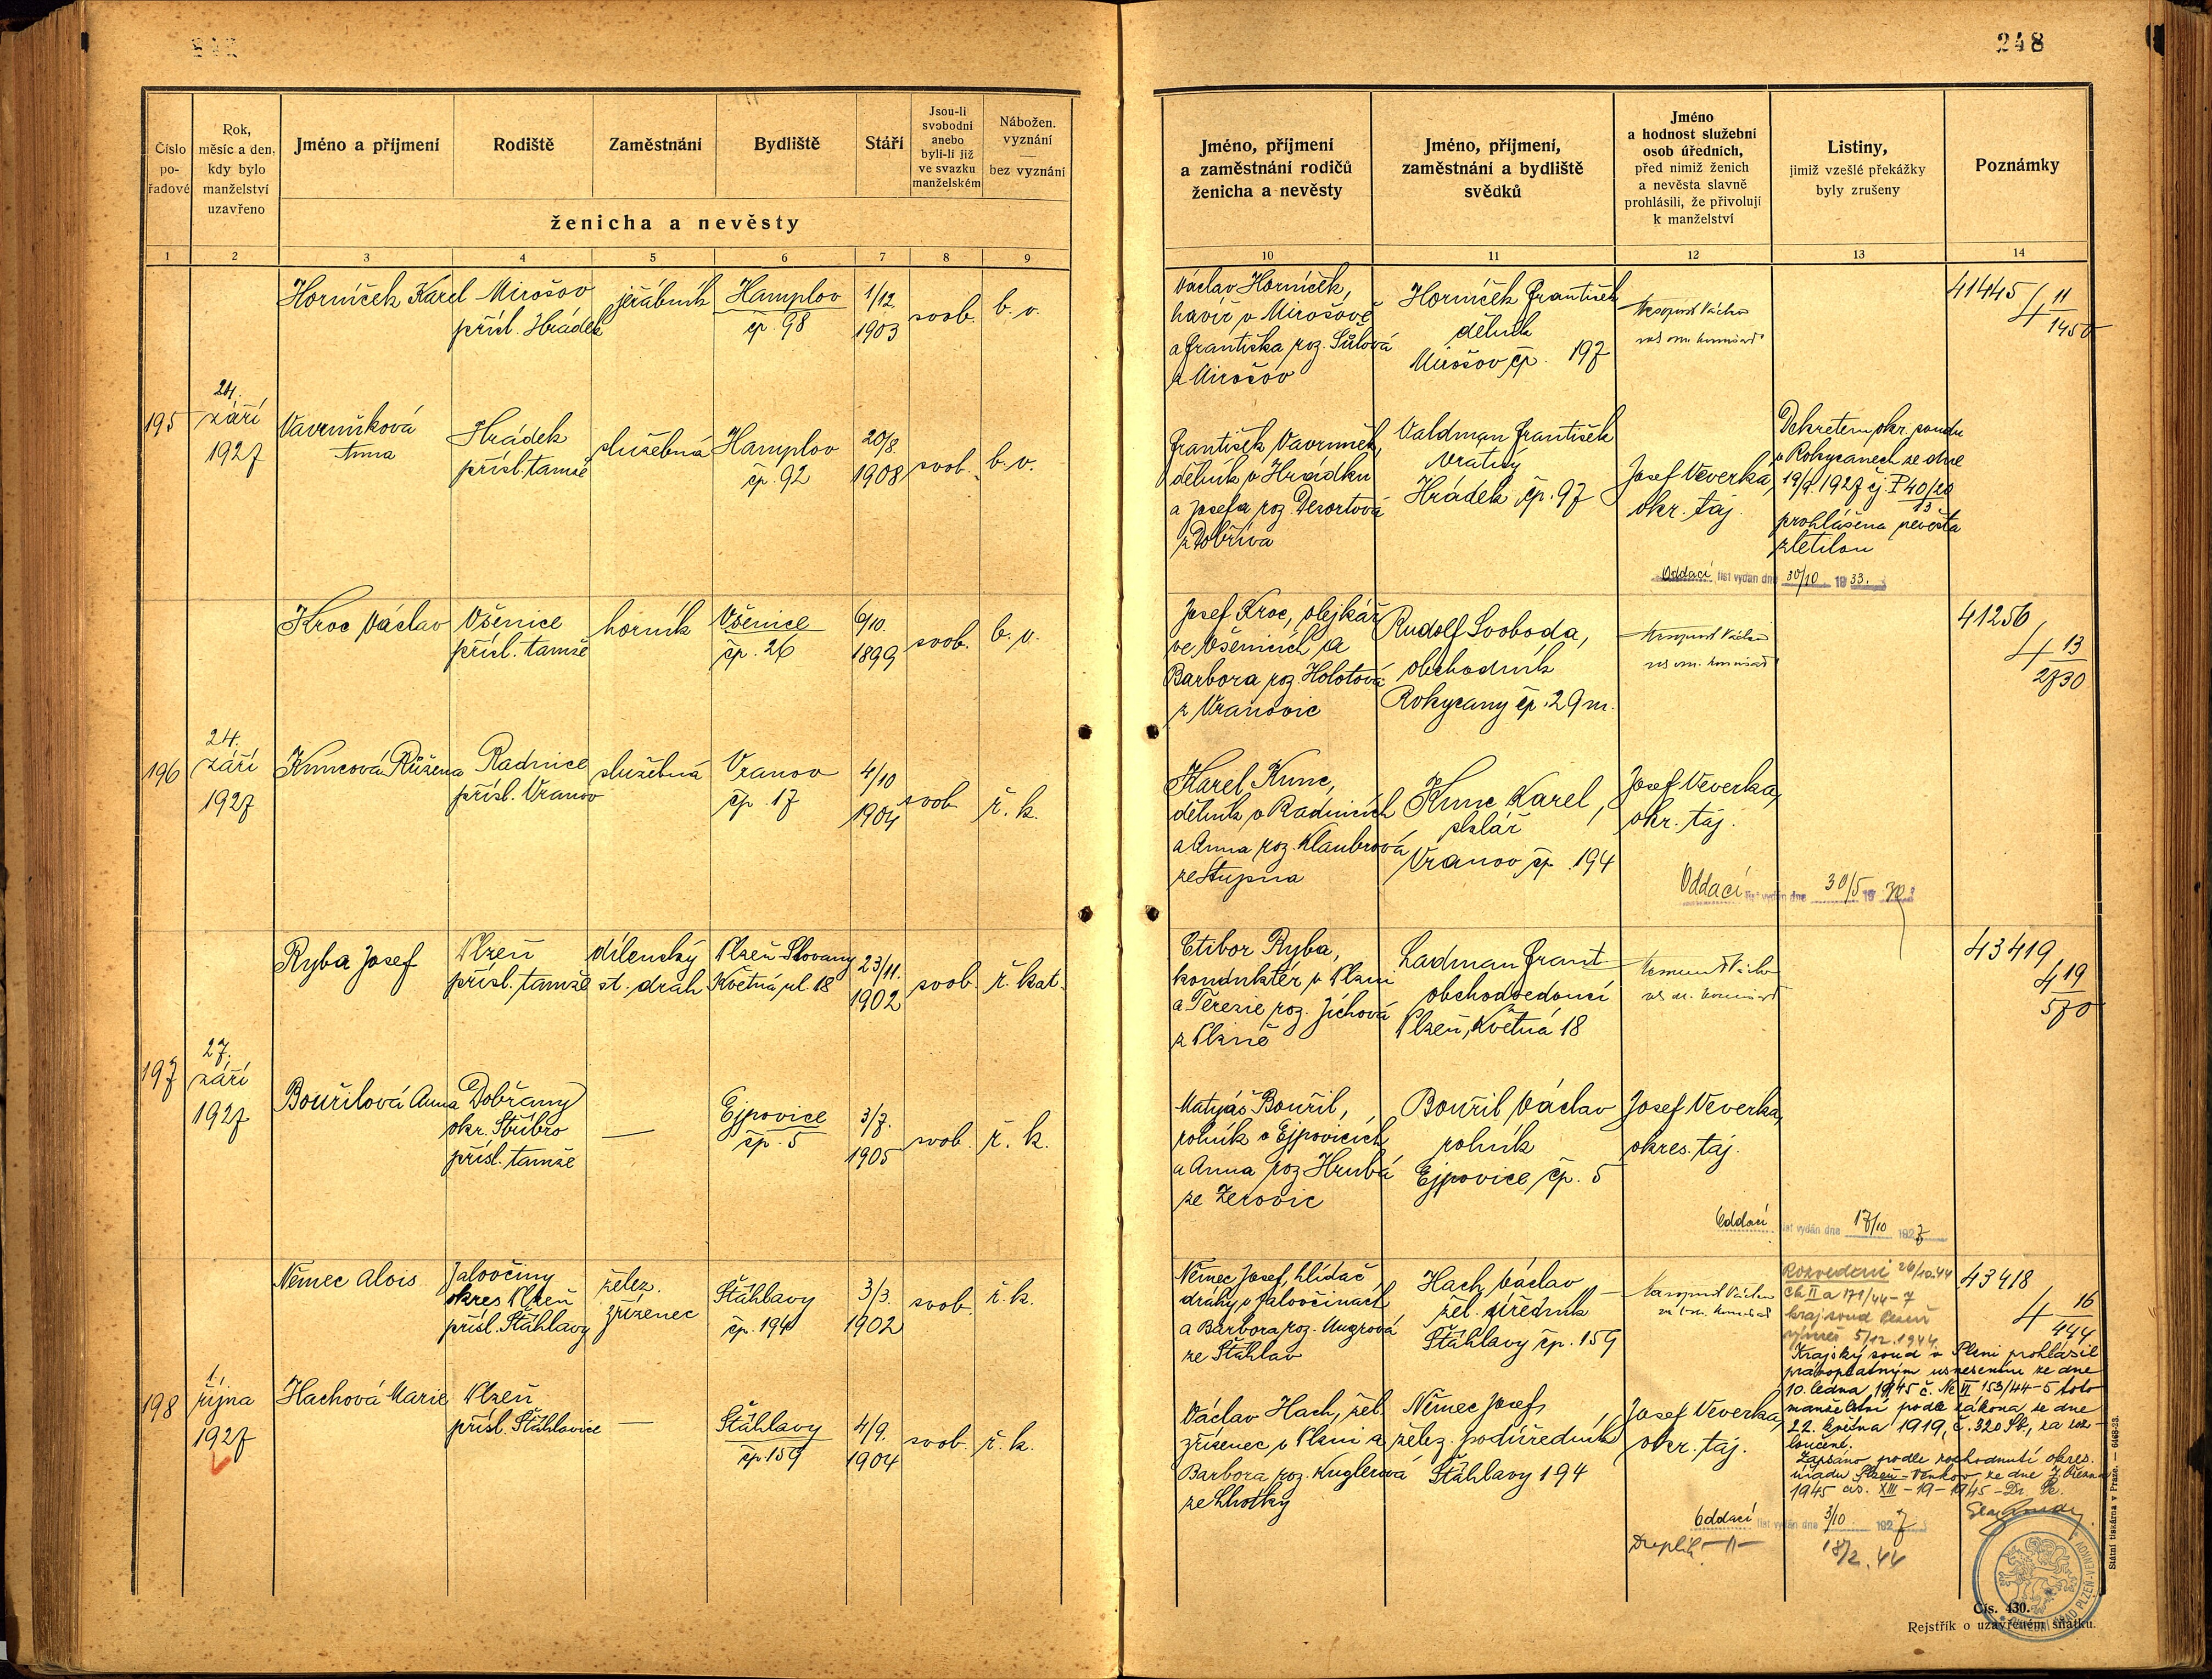 248
Číslo
po-
řadové
Rok,
měsíc a den,
kdy bylo
manželství
uzavřeno
Jméno a příjmení
Rodiště
Zaměstnání
Bydliště
Stáří
Jsou-li
svobodni
anebo
byli-li již
ve svazku
manželském
Nábožen.
vyznání
—
bez vyznání
ženicha a nevěsty
Jméno, příjmení
a zaměstnání rodičů
ženicha a nevěsty
Jméno, příjmení,
zaměstnání a bydliště
svědků
Jméno
a hodnost služební
osob úředních,
před nimiž ženich
a nevěsta slavně
prohlásili, že přivolují
k manželství
Listiny,
jimiž vzešlé překážky
byly zrušeny
Poznámky
1 2 3 4 5 6 7 8 9
10 11 12 13 14
195
24.
září
1927
Horníček Karel
Mirošov
přísl. Hrádek
jeřábník
Hamplov
čp. 98
1/12
1903
svob.
b. v.
Václav Horníček,
havíř v Mirošově
a Františka roz. Šůlová
z Mirošov
Horníček František
dělník
Mirošov čp. 197
41445
4 11
1450
Vavruňková
Anna
Hrádek
přísl. tamže
služebná
Hamplov
čp. 92
20/8.
1908
svob.
b. v.
František Vavruněk,
dělník v Hrádku
a Josefa roz. Desortová
z Dobříva
Valdman František
vrátný
Hrádek čp. 97
Josef Veverka,
okr. taj.
Dekretem okr. soudu
v Rokycanech ze dne
19/9. 1927 čj. P 40/20
13
prohlášena nevěsta
zletilou
Oddací list vydán dne 30/10 1933.
196
24.
září
1927
Kroc Václav
Všenice
přísl. tamže
horník
Všenice
čp. 26
6/10.
1899
svob.
b. v.
Josef Kroc, olejkář
ve Všenicích a
Barbora roz. Holotová
z Vranovic
Rudolf Svoboda,
obchodník
Rokycany čp. 29 m.
41256
4 13
2730
Kuncová Růžena
Radnice
přísl. Vranov
služebná
Vranov
čp. 17
4/10
1904
svob
ř. k.
Karel Kunc,
dělník v Radnicích
a Anna roz. Klaubrová
ze Stupna
Kunc Karel,
sklář
Vranov čp. 194
Josef Veverka,
okr. taj.
Oddací list vydán dne 30/5 19
197
27.
září
1927
Ryba Josef
Plzeň
přísl. tamže
dílenský
st. drah
Plzeň-Slovany
Květná ul. 18
23/11.
1902
svob.
ř. kat.
Ctibor Ryba,
konduktér v Plzni
a Terezie roz. Jíchová
z Plzně
Ladman Frant
obchodvedoucí
Plzeň, Květná 18
43419
4 19
570
Bouřilová Anna
Dobřany
okr. Stříbro
přísl. tamže
—
Ejpovice
čp. 5
3/7.
1905
svob.
ř. k.
Matyáš Bouřil,
rolník v Ejpovicích
a Anna roz Hrubá
ze Zerovic
Bouřil Václav
rolník
Ejpovice čp. 5
Josef Veverka,
okres. taj.
Oddací list vydán dne 17/10 1927
198
1.
října
1927
Němec Alois
Jalovčiny
okres Plzeň
přísl. Štáhlavy
želez.
zřízenec
Štáhlavy
čp. 194
3/3.
1902
svob.
ř. k.
Němec Josef, hlídač
dráhy v Jalovčinách
a Barbora roz. Ungrová
ze Štáhlav
Hach Václav
žel. úředník
Štáhlavy čp. 159
Rozvedeni 26/10.44
Ck II a 171/44-7
kraj. soud Plzeň
5/12. 1944
43418
4 16
444
Hachová Marie
Plzeň
přísl. Štáhlavice
—
Štáhlavy
čp. 159
4/9.
1904
svob.
ř. k.
Václav Hach, žel.
zřízenec v Plzni a
Barbora roz. Kuglerová
ze Lhotky
Němec Josef,
želez. podúředník
Štáhlavy 194
Josef Veverka,
okr. taj.
Krajský soud v Plzni prohlásil
právoplatným usnesením ze dne
10. ledna 1945 č. Nc II 153/44-5 toto
manželství podle zákona ze dne
22. května 1919, č. 320 Sb., za roz-
loučené.
Zapsáno podle rozhodnutí okres.
úřadu Plzeň-venkov ze dne 7. března
1945 čís. XIII-19-1945-
Oddací list vydán dne 3/10 1927
18/2. 44
Státní tiskárna v Praze. — 6468-23.
Čís. 430.
Rejstřík o uzavřeném sňatku.